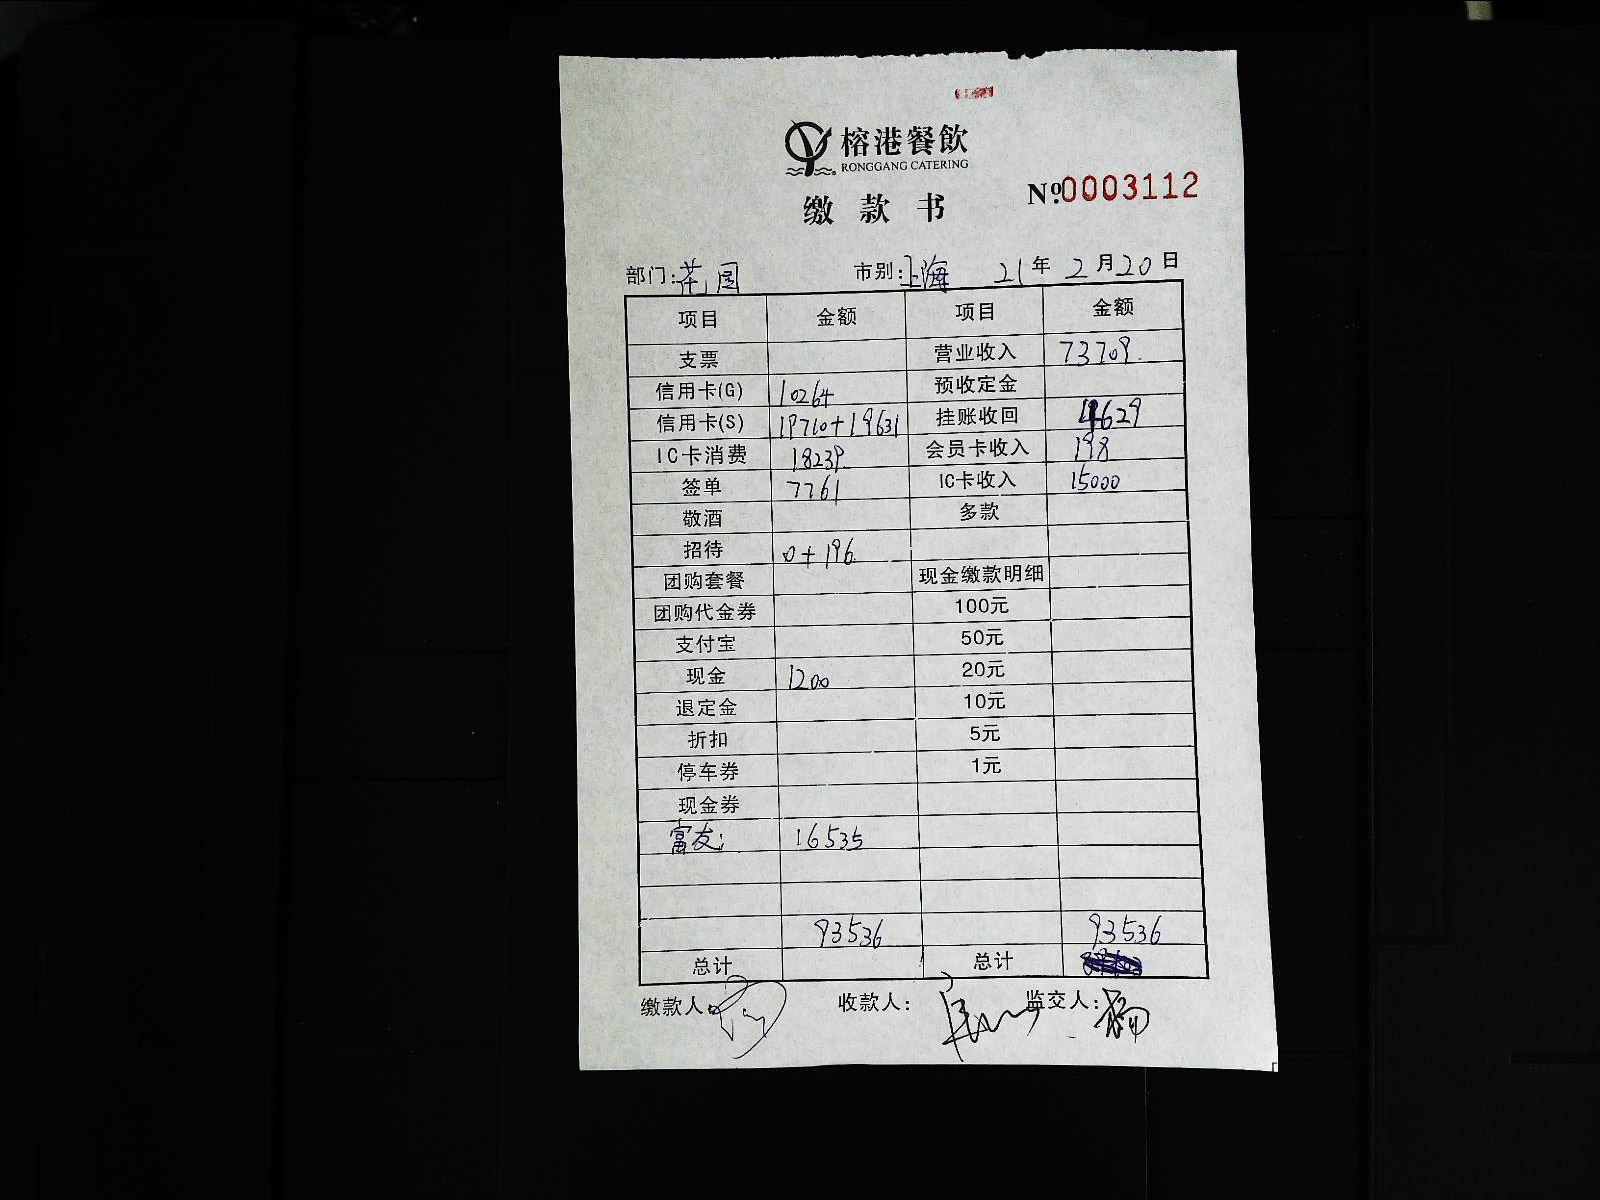 榕港餐飲
RONGGANG CATERING
缴款书
Nº0003112
部门:花园 市别:上海 21年2月20日
项目 金额 项目 金额
支票 营业收入 73709
信用卡(G) 10264 预收定金
信用卡(S) 19710+19631 挂账收回 4629
IC卡消费 18239 会员卡收入 198
签单 7761 IC卡收入 15000
敬酒 多款
招待 0+196
团购套餐 现金缴款明细
团购代金券 100元
支付宝 50元
现金 1200 20元
退定金 10元
折扣 5元
停车券 1元
现金券
富友: 16535
93536 93536
总计 总计
缴款人: 收款人: 监交人: